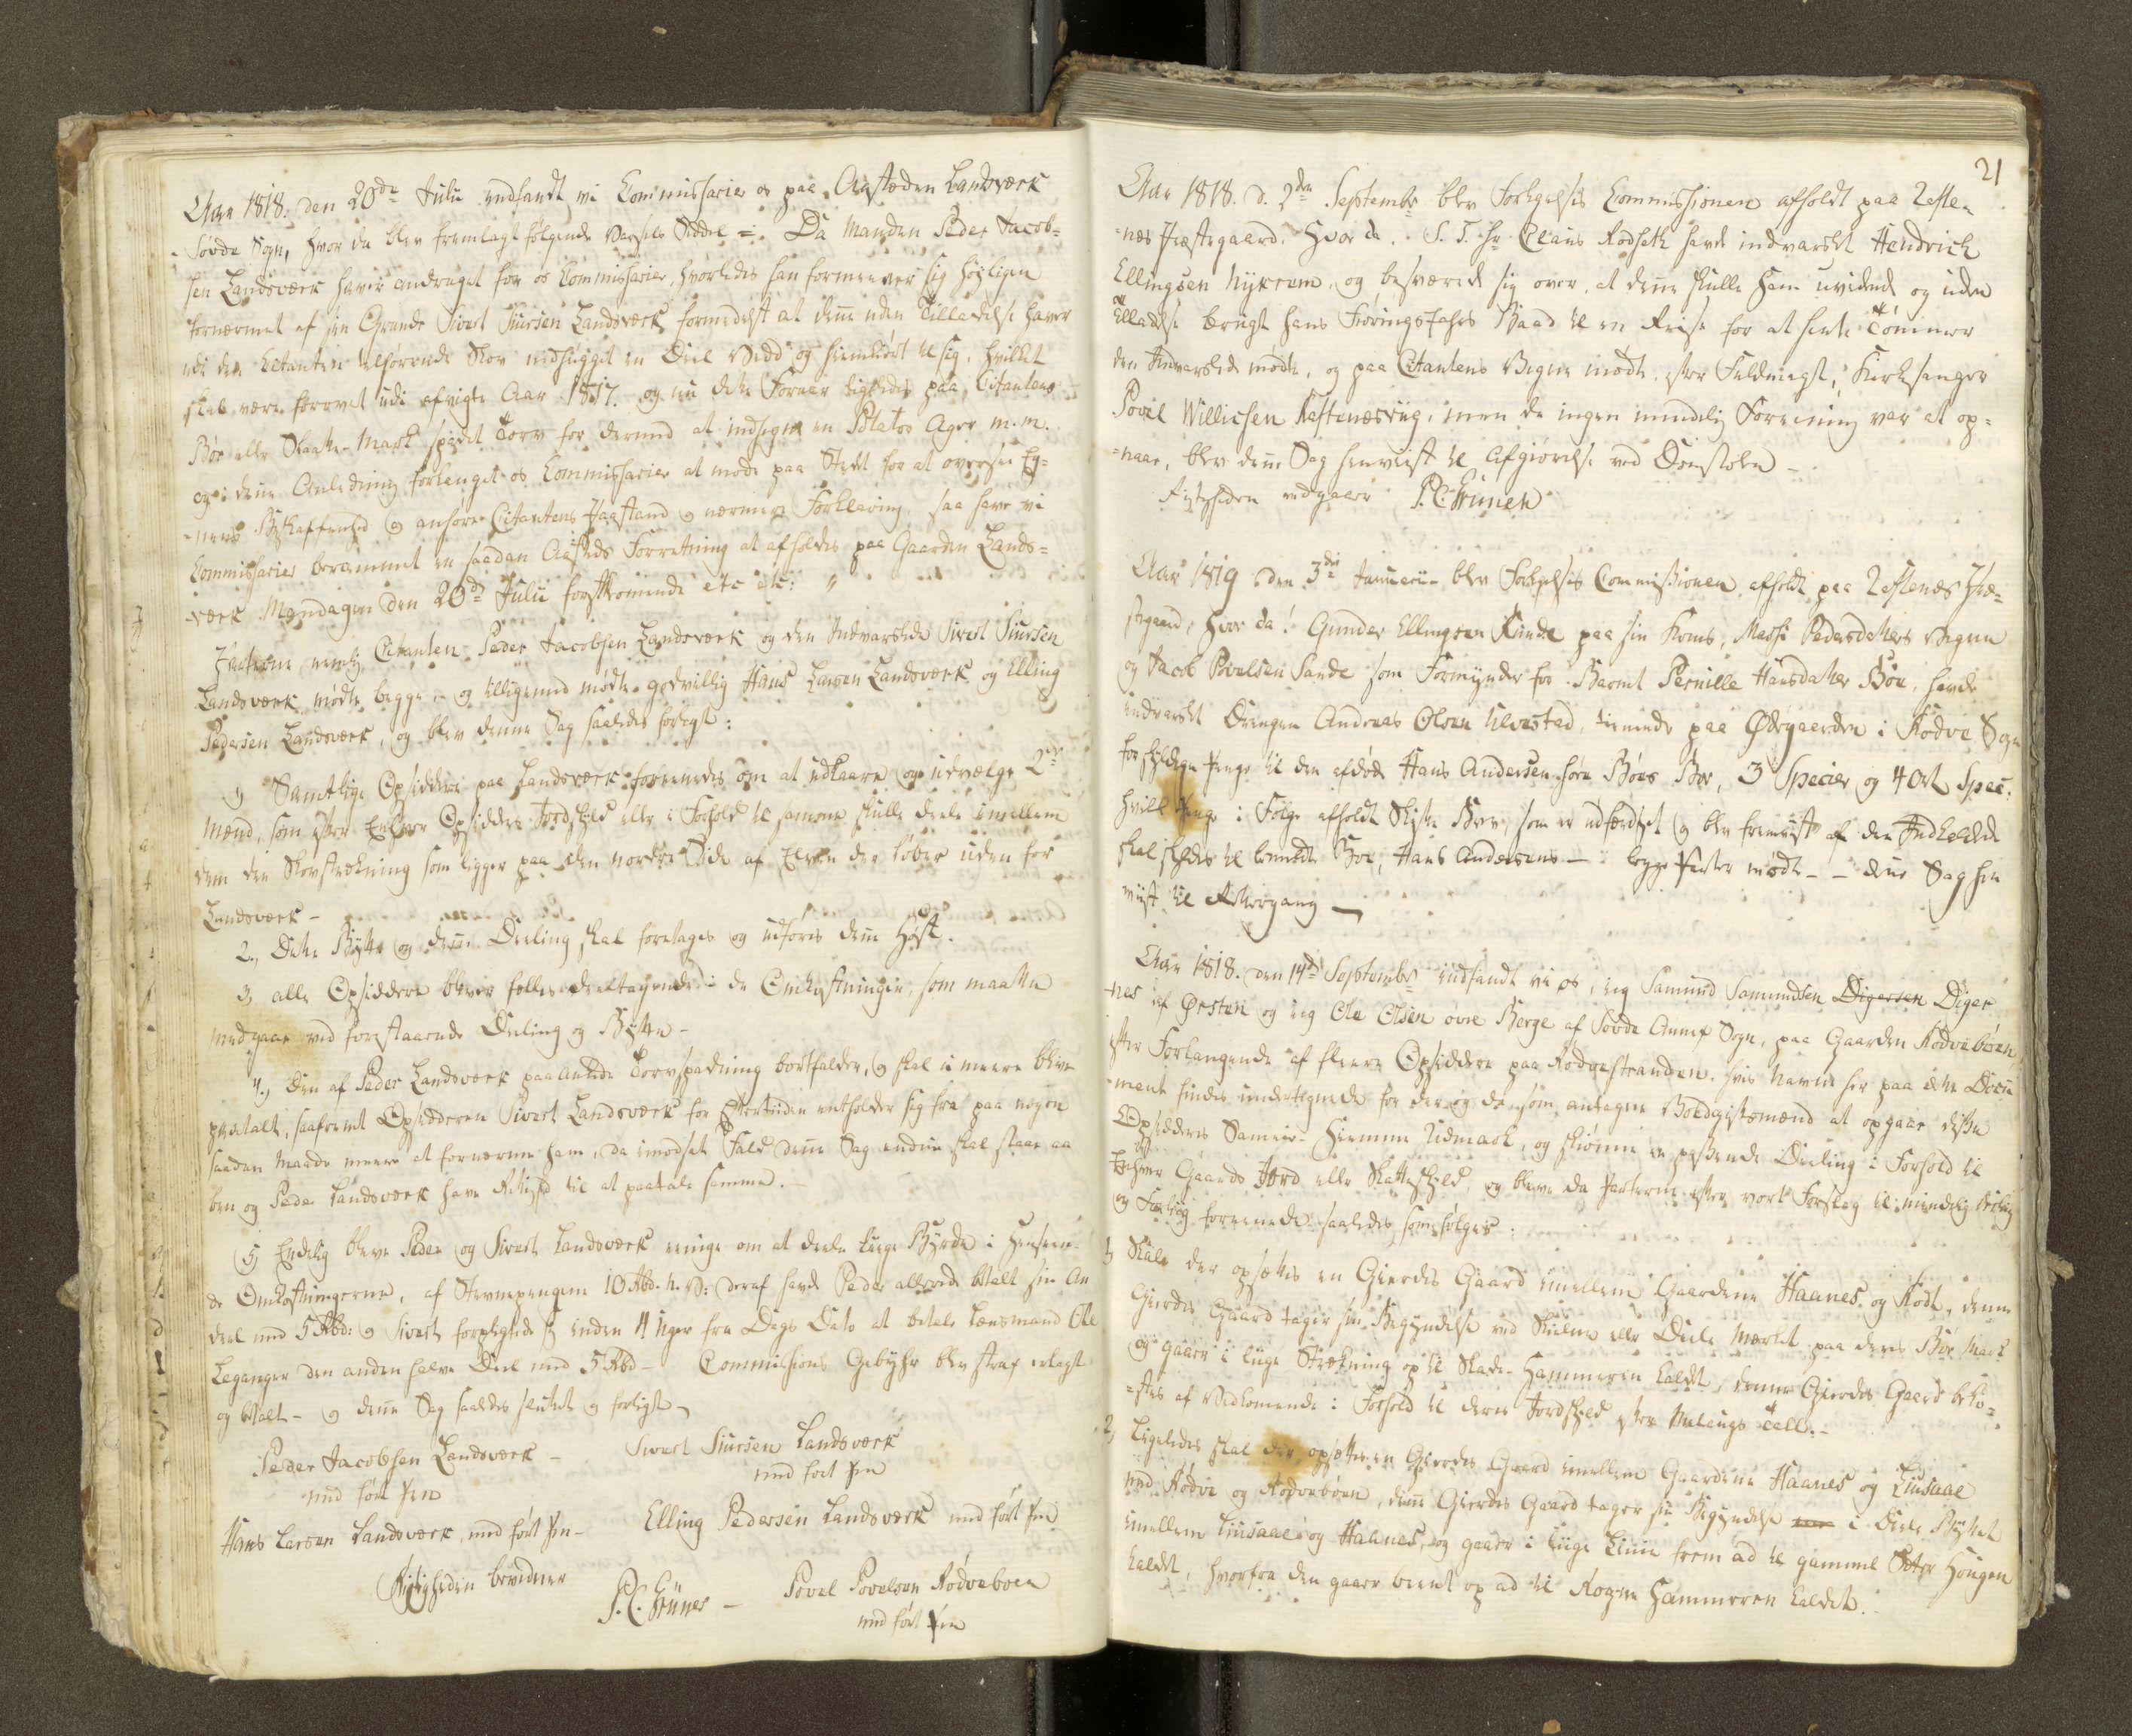 Aar 1818. den 20de Julii indfandt vi Commissarier os paa Aastæden Landsværk
Søvde Sogn, hvor da blev fremlagt følgende Varsels Seddel =. Da Manden Peder Jacob-
sen Landsværk haver andraget for os Commissarier, hvorledes han formeener sig høyligen
fornærmet af sin Grande Sivert Siursen Landsværk formedelst at denne uden Tilladelse haver
udi den Citanten tilhørende Skov nedhugget en Deel Vedd og hiemkiørt til sig, hvilket
skal være forøvet udi afvigte Aar 1817. og nu dette Foraar ligeledes paa Citantens
Bøe eller Mark spadet Torv for dermed at indhegne en Potatos Ager m.m.
og i denne Anledning forlanget os Commissarier at møde paa Stedet for at oversee Ey-
-nens Beskaffenhed og anhøre Citantens Paastand og nærmere Forklaring, saa have vi
Commissarier berammet en saadan Aasteds Forretning at afholdes paa Gaarden Lands-
værk Mandagen den 20de Julii førstkomende etc etc: "
Parterne nemlig Citanten Peder Jacobsen Landsværk og den Indvarslede Sivert Siursen
Landsværk mødte begge, og tilligemed mødte godvillig Hans Larsen Landsværk og Elling
Pedersen Landsværk, og blev denne Sag saaledes forligt:
1) Samtlige Opsiddere paa Landsværk foreenedes om at udkaare og udvælge 2de
Mænd, som efter Enhver Opsidders Jordskyld eller i Forhold til samme skulle deele imellem
dem den Skovstrækning som ligger paa den nordre Side af Elven der løber uden for
Landsværk -
2, Dette Bytte og denne Deeling skal foretages og udføres denne Høst.
3, alle Opsiddere bliver fælles deeltagende i de Omkostninger, som maatte
medgaae ved forestaaende Deeling og Bytte -
4, Den af Peder Landsværk paaankede Torvspadning bortfalder, og skal ei meere blive
paatalt, saafremt Opsidderen Sivert Landsværk for Eftertiden entholder sig fra paa nogen
saadan Maade meere at fornærme ham, da i modsat Fald denne Sag endnu skal staae aa
ben og Peder Landsværk have Rettighed til at paatale samme.
5, Endelig bleve Peder og Sivert Landsværk eenige om at deele liige Byrde i Henseen-
de Omkostningerne, af Stevnepengene 10 Rbd. N.V: deraf havde Peder allerede betalt sin An
deel med 5 Rbd: og Sivert forpligtede sig inden 4 Uger fra Dags Dato at betale Lensmand Ole
Leganger den anden halve Deel med 5 Rbd - Commissions Gebyhr blev straf erlagt
og betalt - og denne Sag saaledes sluttet og forligt -
Peder Jacobsen Landsværk - Sivert Siursen Landsværk
med ført Pen med ført Pen
Hans Larsen Landsværk, med ført Pen - Elling Pedersen Landsværk med ført Pen
Rigtigheden bevidner
P. C. - Povel Povelsen Rødvebøen
med ført Pen
21
Aar 1818. d. 2den September blev Forligelses Commissionen afholdt paa Teste-
-nes Præstegaard. Hvor da S. T. Hr Claus Rodseth havde indvarslet Hendrich
Ellingsen Nykrem, og besværede sig over, at denne skulle ham uvidende og uden
Tilladelse brugt hans Færings Baad til en Reise for at hente Tømmer
den Indvarslede mødte, og paa Citantens Vegne mødte efter Fuldmagt, Kirkesanger
Povel Willicsen, men da ingen mindelig Foreening var at op-
-naae, blev denne Sag henviist til Afgiørelse ved Domstolen -
Rigtigheden vedgaaer P. C.
Aar 1819 den 3die Januarii blev Forligelses Commissionen afholdt paa Præ-
stegaard, hvor da: Gunder Ellingsen paa sin Kones, Massi Pedersdatters Vegne
og Jacob Povelsen Sande som Formynder for Barnet Pernille Hansdatter Bøe, havde
indvarslet Drengen Andreas Olsen, tienende paa Ødegaarden i Rødve Sogn
for skyldige Penge til den afdøde Hans Andersen Bøes Boe, 3 Specier og 4 Ort Spec:
hvilke Penge i Følge afholdt Skifte Brev, som er udfærdiget og blev fremvist af den Indkaldede
skal skyldes til bemeldte Boe, Hans Andersens - begge Parter mødte - - denne Sag hen
viist til Rettergang -
Aar 1818. den 14de September indfandt vi os, jeg Samund Samundsen Digersen Diger
nes af Ørsten og jeg Ole Olsen øvre Berge af Søvde Annex Sogn, paa Gaarden Rødvebøen
efter Forlangende af fleere Opsiddere paa Rødvestranden, hvis Navne her paa dette Docu
-ment findes undertegnede for der og densom antagne Voldgiftsmænd at opgaae disse
Opsidderes Sameie- Hiemme Udmark, og skiønne en passende Deeling i Forhold til
Enhver Gaards Jord eller Matteskyld, og bleve da Parterne efter vort Forslag til mindelig
og Forliig foreenede saaledes som følger:
1, Skal der opsættes en Gierdes Gaard imellem Gaardene Haanes og Rødt, denne
Gierdes Gaard tager sin Begyndelse ved Skielne eller Deele Mærket paa deres Bøe Mark
og gaaer i liige Strækning op til Skade-Hammeren kaldt, denne Gierdes Gaard beko-
-stes af Vedkomende i Forhold til deres Jordskyld efter Tall. -
2, Ligeledes skal der opsættes en Gierdes Gaard imellem Gaardene Haanes og Liusaae
med Rødve og Rødvebøen, denne Gierdes Gaard tager sin Begyndelse i Deele Byttet
imellem Liusaae og Haanes, og gaaer i liige Linie frem ad til gammel Seter Hougen
kaldt, hvorfra den gaaer beent op ad til Hammeren kaldet.